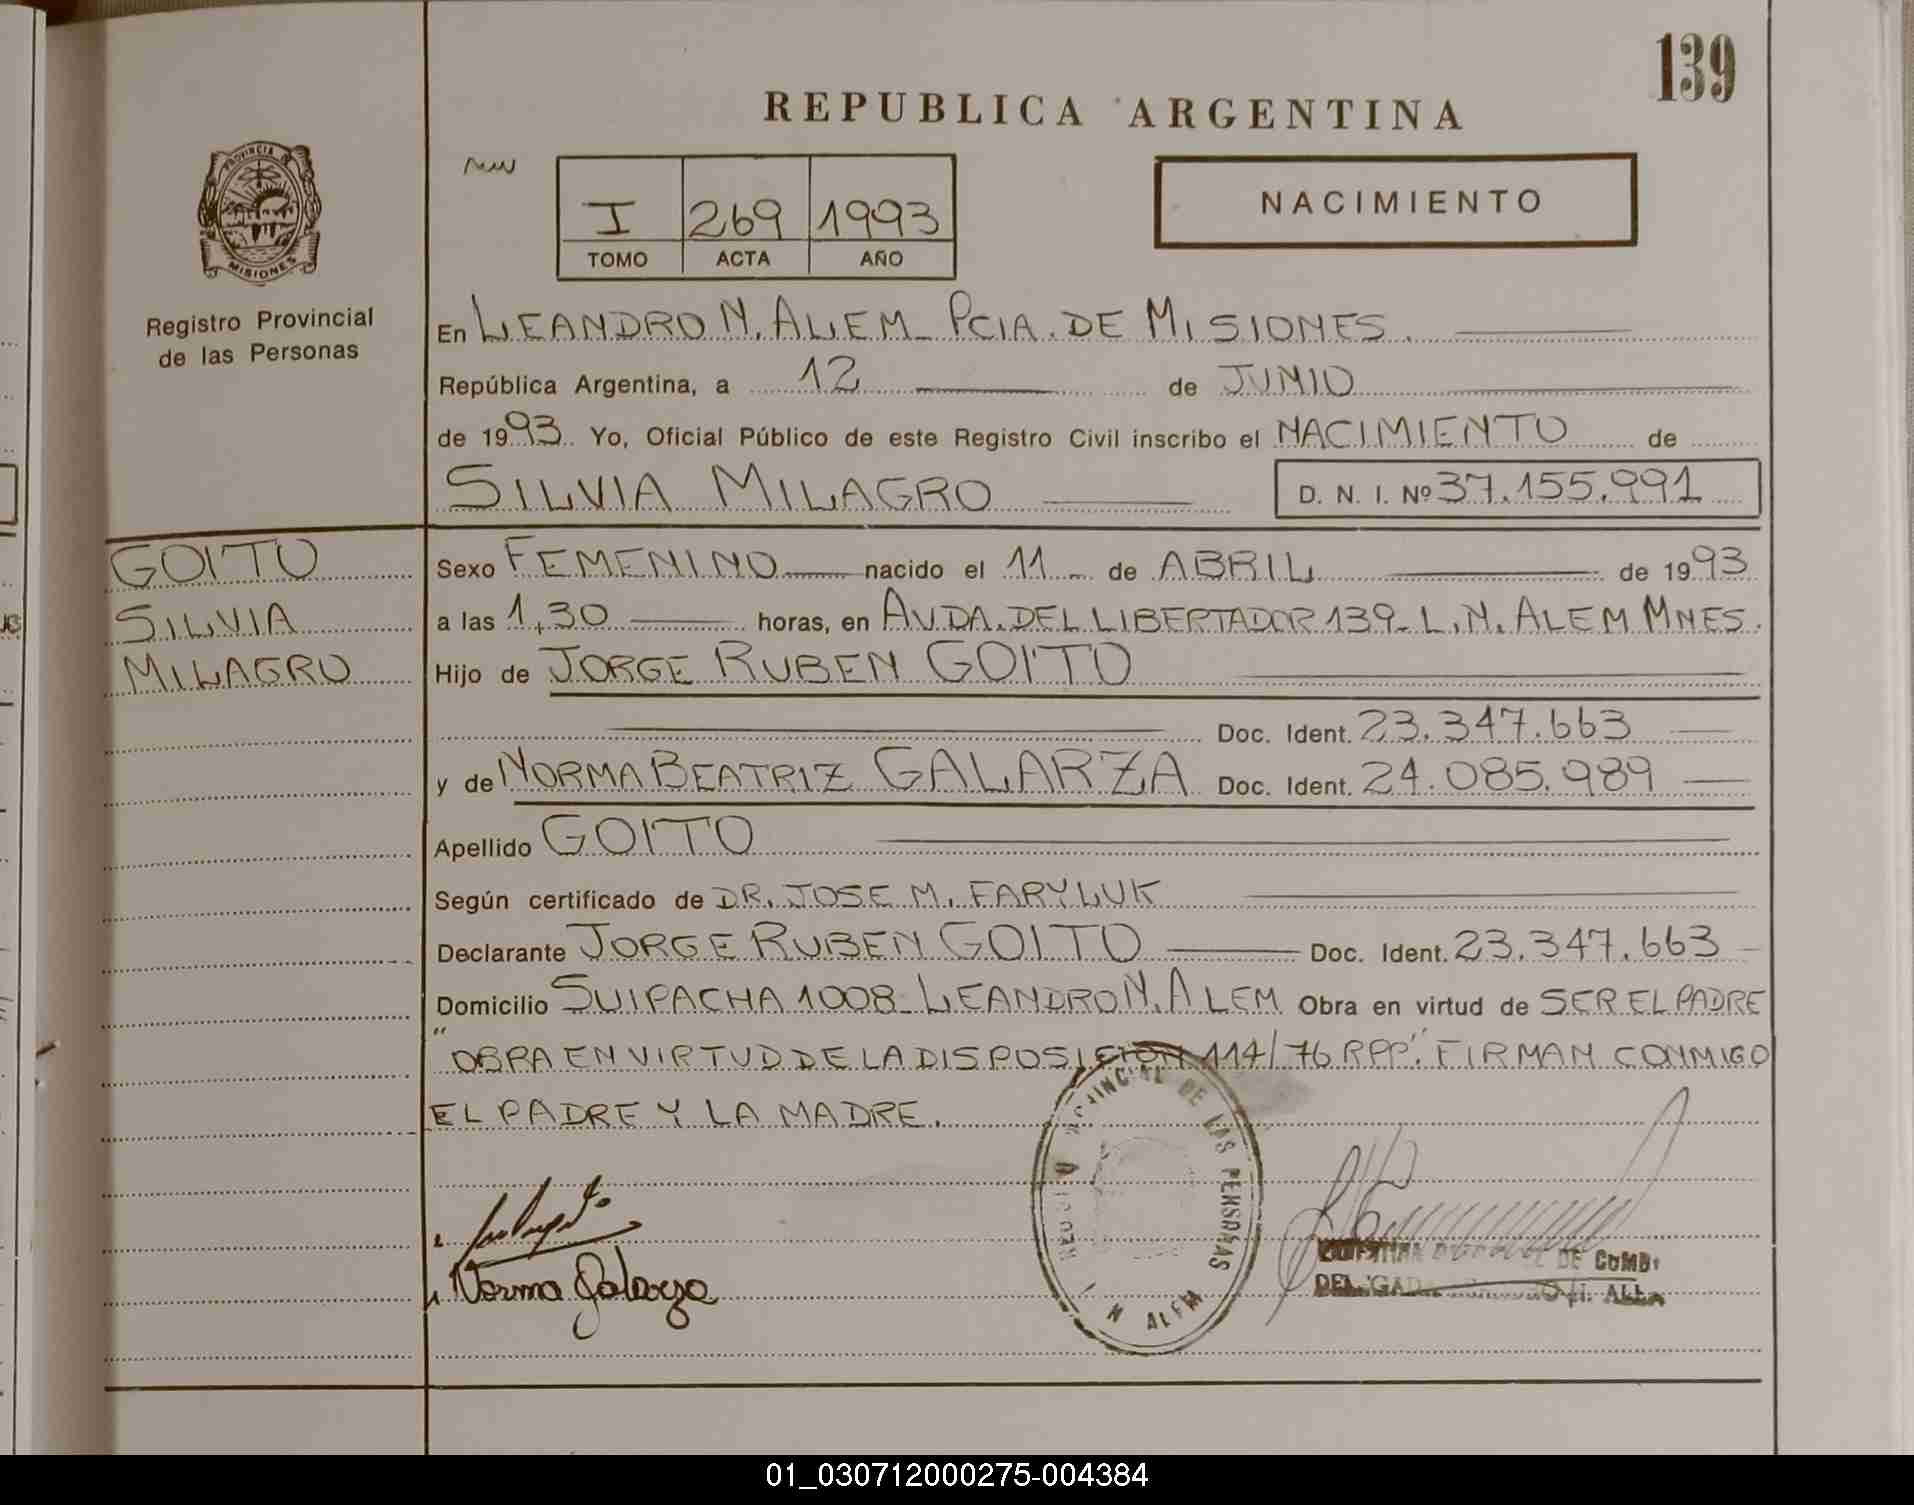 139
REPUBLICA ARGENTINA
PROVINCIA DE
MISIONES
Registro Provincial
de las Personas
I 269 1993
TOMO ACTA AÑO
NACIMIENTO
En LEANDRO N. ALEM - PCIA. DE MISIONES.
República Argentina, a 12 de JUNIO
de 1993. Yo, Oficial Público de este Registro Civil inscribo el NACIMIENTO de
SILVIA MILAGRO D. N. I. Nº 37.155.991
GOITO
SILVIA
MILAGRO
Sexo FEMENINO nacido el 11 de ABRIL de 1993
a las 1,30 horas, en AVDA. DEL LIBERTADOR 139 - L. N. ALEM MNES.
Hijo de JORGE RUBEN GOITO
Doc. Ident. 23.347.663
y de NORMA BEATRIZ GALARZA Doc. Ident. 24.085.989
Apellido GOITO
Según certificado de DR. JOSE M. FARYLUK
Declarante JORGE RUBEN GOITO Doc. Ident. 23.347.663
Domicilio SUIPACHA 1008 - LEANDRO N. ALEM Obra en virtud de SER EL PADRE
"OBRA EN VIRTUD DE LA DISPOSICION 114/76 RPP". FIRMAN CONMIGO
EL PADRE Y LA MADRE.
Norma Galarza
DE LAS PERSONAS
N ALEM
DE
01_030712000275-004384